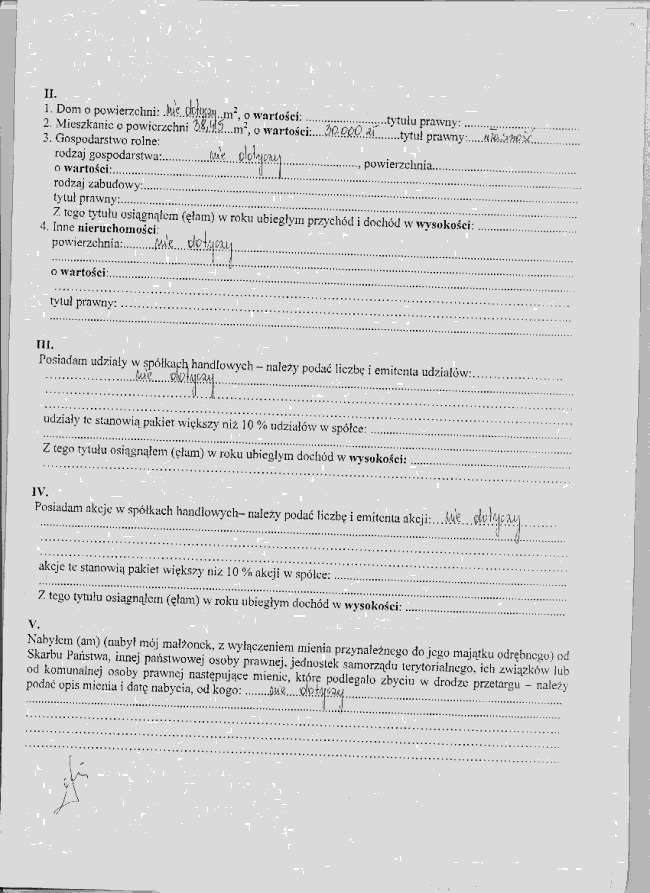 II.
1. Dom o powierzchni: nie dotyczy m², o wartości: ........................tytułu prawny: ................................
2. Mieszkanie o powierzchni 38,45 m², o wartości: 30.000 zł tytuł prawny: własność
3. Gospodarstwo rolne:
rodzaj gospodarstwa: nie dotyczy, powierzchnia................................
o wartości:................................
rodzaj zabudowy:................................
tytuł prawny:................................
Z tego tytułu osiągnąłem (ęłam) w roku ubiegłym przychód i dochód w wysokości: ........................
4. Inne nieruchomości:
powierzchnia: nie dotyczy
o wartości:................................
tytuł prawny: ................................
III.
Posiadam udziały w spółkach handlowych – należy podać liczbę i emitenta udziałów:........................
nie dotyczy
udziały te stanowią pakiet większy niż 10 % udziałów w spółce: ................................
Z tego tytułu osiągnąłem (ęłam) w roku ubiegłym dochód w wysokości: ................................
IV.
Posiadam akcje w spółkach handlowych– należy podać liczbę i emitenta akcji: nie dotyczy
akcje te stanowią pakiet większy niż 10 % akcji w spółce: ................................
Z tego tytułu osiągnąłem (ęłam) w roku ubiegłym dochód w wysokości: ................................
V.
Nabyłem (am) (nabył mój małżonek, z wyłączeniem mienia przynależnego do jego majątku odrębnego) od
Skarbu Państwa, innej państwowej osoby prawnej, jednostek samorządu terytorialnego, ich związków lub
od komunalnej osoby prawnej następujące mienie, które podlegało zbyciu w drodze przetargu – należy
podać opis mienia i datę nabycia, od kogo: nie dotyczy